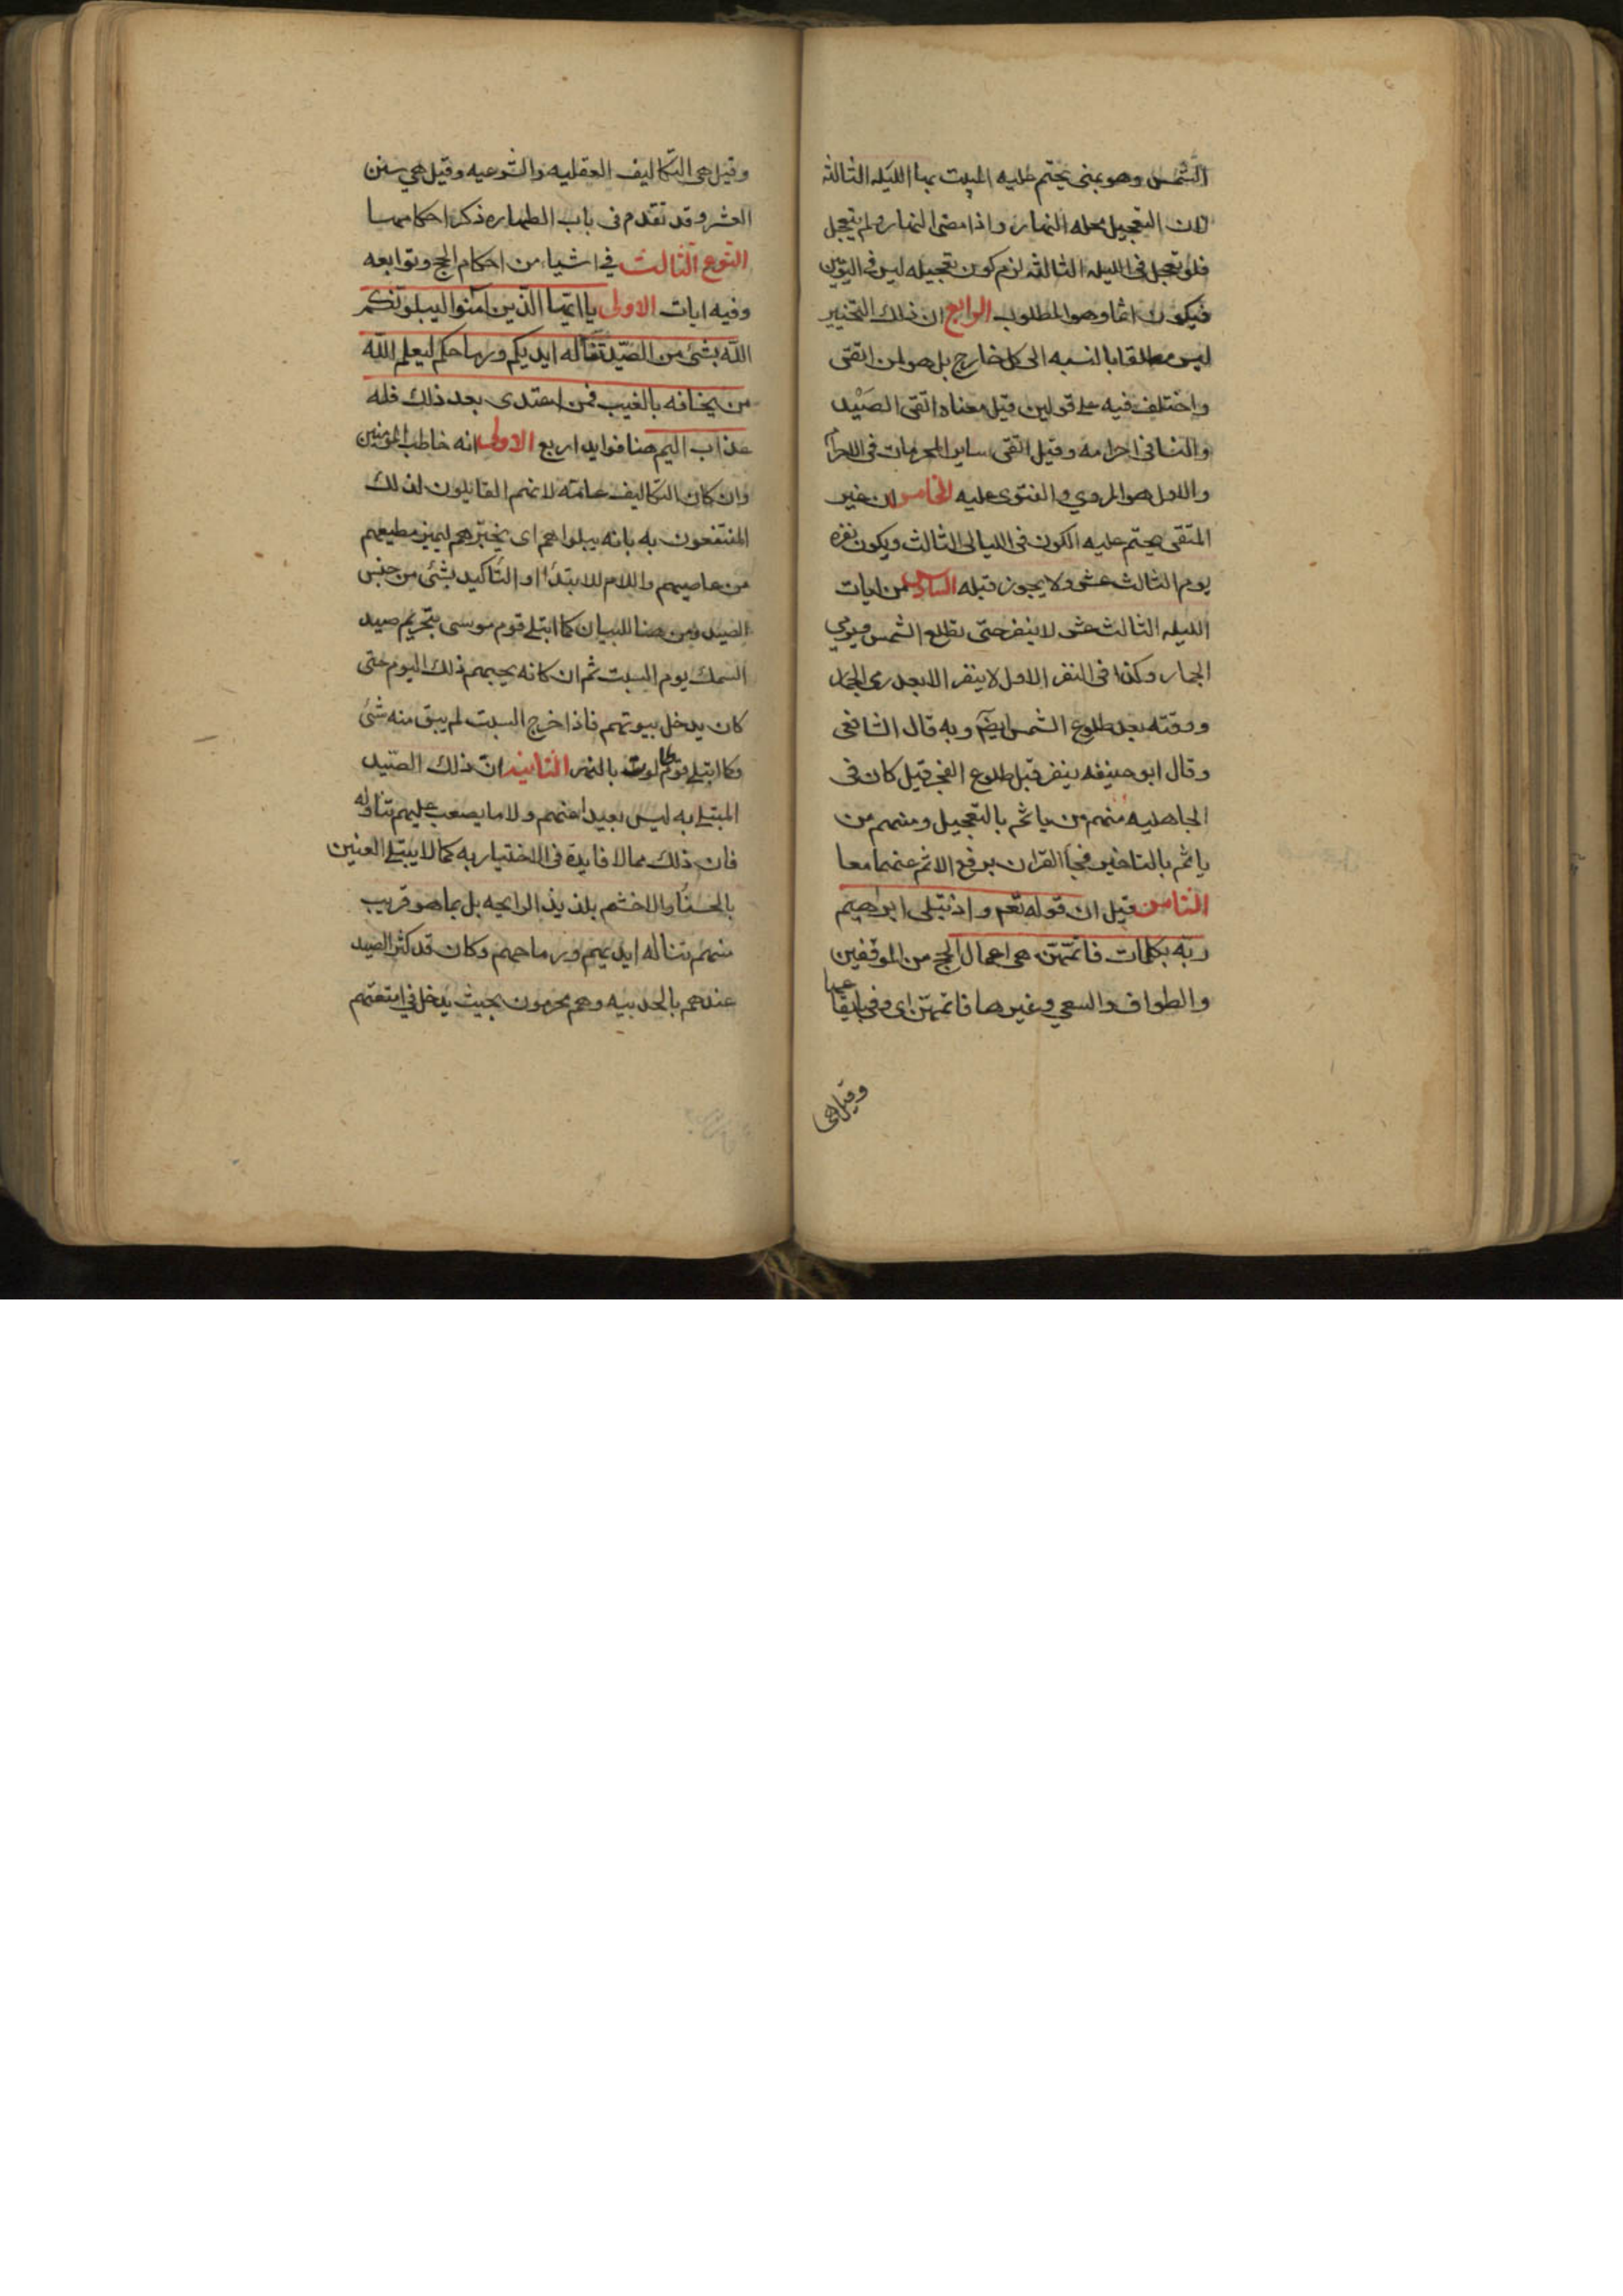 الشمس وهو بمنى يحتم عليه المبيت بها الليله الثالثه
لان التعجيل محله النهار واذا مضى النهار ولم يتعجل
فلو تعجل فى الليله الثالثه لزم كون تعجيله ليس فى اليومين
فيكون اثما وهو المطلوب الرابع ان ذلك التخيير
ليس مطلقا بالنسبه الى كل خارج بل هو لمن اتقى
واختلف فيه على قولين قيل معناه اتقى الصيد
والنسا فى احرامه وقيل اتقى ساير المحرمات فى الاحرام
والاول هو المروي والفتوى عليه الخامس ان غير
المتقى يحتم عليه الكون فى الليالى الثالث ويكون نفره
يوم الثالث عشر ولا يجوز قبله السادس من ابات
الليله الثالث عشر لا ينفر حتى تطلع الشمس ويرمي
الجمار وكذا فى النفر الاول لا ينفر الا بعد رمى الجمار
ووقته بعد طلوع الشمس ايضم وبه قال الشافعى
وقال ابو حنيفه ينفر قبل طلوع الفجر قيل كان فى
الجاهليه منهم من ياثم بالتعجيل ومنهم من
ياثم بالتاخير فجا القران برفع الاثم عنهما معا
الثامن قيل ان قوله تعم واذ بتلى ابراهيم
ربه بكلمات فاتمهن هى اعمال الحج من الموقفين
والطواف والسعي وغيرها فاتمهن اى وفى بايقاعها
وقيل هى
وقيل هى التكاليف العقليه والشرعيه وقيل هي سنن
العشر وقد تقدم فى باب الطهاره ذكر احكامها
النوع الثالث في اشيا من احكام الحج وتوابعه
وفيه ايات الاولى يا ايها الذين امنوا ليبلونكم
الله بشئ من الصيد تناله ايديكم ورماحكم ليعلم الله
من يخافه بالغيب فمن اعتدى بعد ذلك فله
عذاب اليم هنا فوايد اربع الاولى انه خاطب المؤمنين
وان كان التكاليف عامه لانهم القايلون لذلك
المنتفعون به بانه يبلوهم اى يختبرهم ليميز مطيعهم
من عاصيهم واللام للابتدا او التاكيد بشئ من جنس
الصيد ومن هنا للبيان كما ابتلى قوم موسى بتحريم صيد
السمك يوم السبت ثم ان كانه يجيهم ذلك اليوم حتى
كان يدخل بيوتهم فاذا خرج السبت لم يبق منه شئ
وكما ابتلى قوم طالوت بالنهر الثانيه ان ذلك الصيد
المبتلى به ليس بعيدا عنهم ولا ما يصعب عليهم تناوله
فان ذلك مما لا فايدة فى الاختيار به كما لا يبتلى العنين
بالحسنا والاخشم بلذيذ الرايحه بل بما هو قريب
منهم تناله ايديهم ورماحهم وكان قد كثر الصيد
عندهم بالحديبيه وهم محرمون بحيث يدخل في امتعتهم